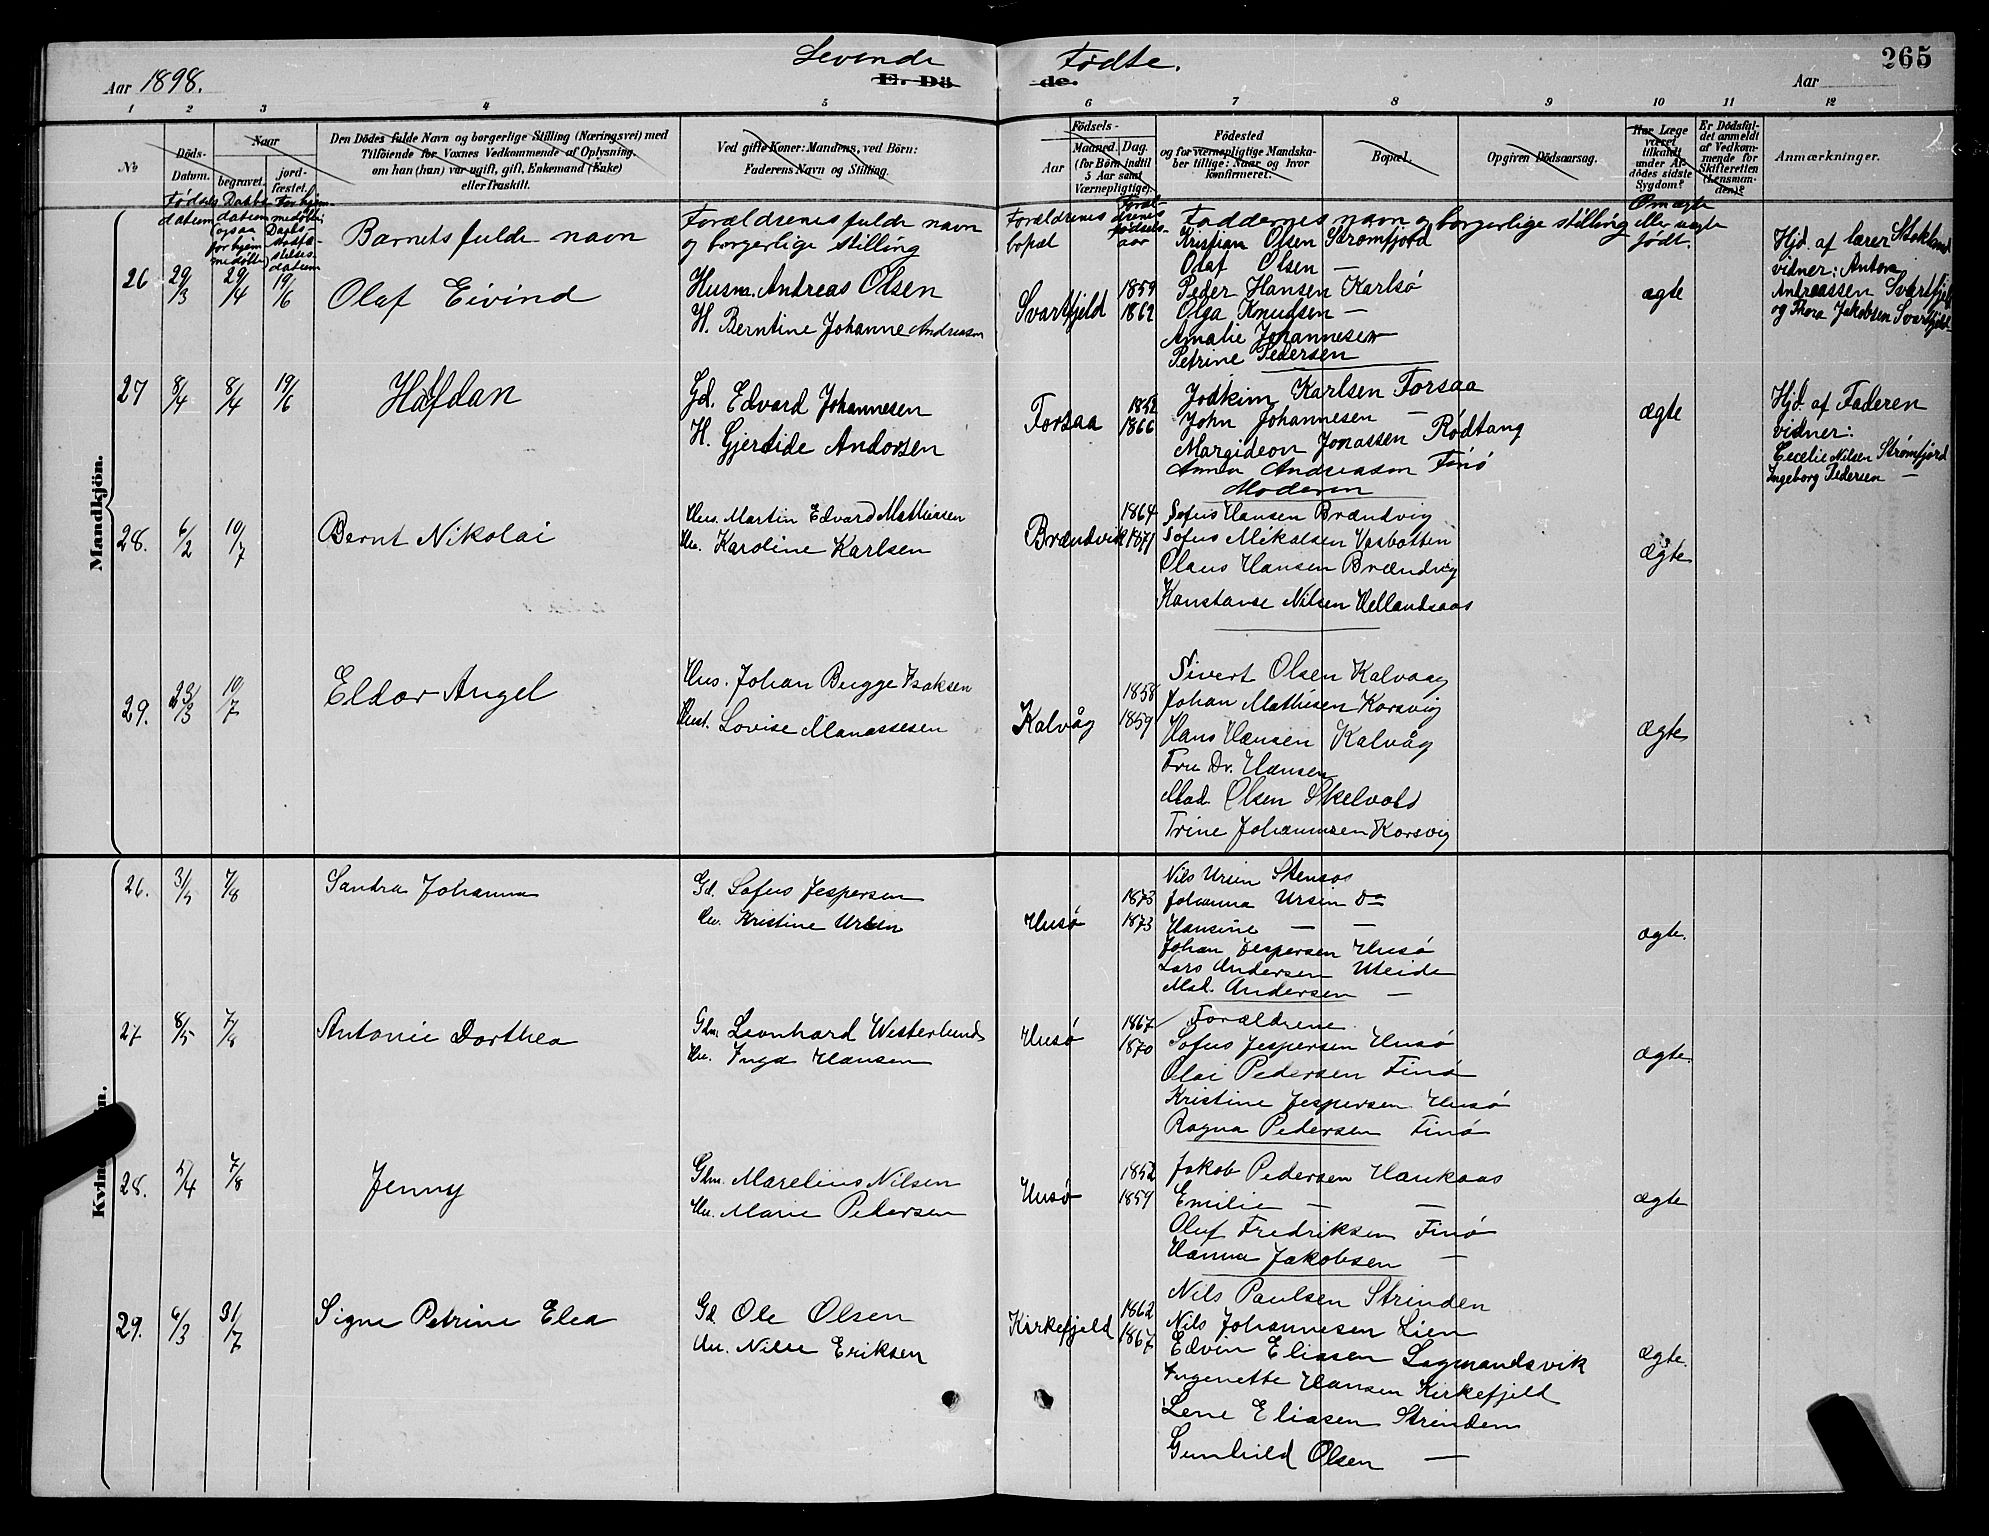 Levende Fødte.
265
Aar 1898. E. Dö de. Aar
1 2 3 4 5 6 7 8 9 10 11 12
No
Döds-Datum.
Naar
begravet.
jordfæstet.
Den Dödes fulde Navn og borgerlige Stilling (Næringsvei) med
Tilföiende for Voxnes Vedkommende af Oplysning,
om han (hun) var ugift, gift, Enkemand (Enke)
eller fraskilt.
Ved gifte Koner: Mandens, ved Börn:
Faderens Navn og Stilling.
Födsels-
Aar
Maaned. Dag.
(for Börn indtil
5 Aar samt
Værnepligtige).
Födested
og for værnepligtige Mandska-
ber tillige: Naar og hvor
konfirmeret.
Bopæl.
Opgiven Dödsaarsag.
Har Læge
været
tilkaldt
under Af-
dödes sidste
Sygdom?
Er Dödsfal-
det anmeldt
af Vedkom-
mende for
Skifteretten
(Lensman-
den)?
Anmærkninger.
Fødsels
datum
Daabs
datum
ogsaa
for hjem
medøbte
For hjem
medøbte:
Daabs-
stadfæ-
stelses-
datum
Barnets fulde navn
Forældrenes fulde navn
og borgerlige stilling
Forældrenes
bopæl
Foræl-
drenes
fødsels-
aar
Faddernes navn og borgerlige stilling
Om ægte
eller uægte
født.
Mandkjön.
26 29/3 29/4 19/6 Olaf Eivind
Husm. Andreas Olsen
H. Berntine Johanne Andreasen
Svartfjeld 1859
1862
Kristian Olsen Strømfjord
Olaf Olsen —
Peder Hansen Karlsø
Olga Knudsen —
Amalie Johannesen
Petrine Pedersen
ægte
Hjd. af lærer Stokland
vidner: Antora
Andreassen Svartfjeld
og Thora Jakobsen Svartfjeld
27 8/4 8/4 19/6 Halfdan
Gd. Edvard Johannesen
H. Gjertide Andorsen
Forsaa 1852
1866
Joakim Karlsen Forsaa
John Johannesen —
Margideon Jonassen Rødtang
Anna Andreasen Finø
Moderen
ægte
Hjd. af Faderen
vidner:
Cecelie Nilsen Strømfjord
Ingeborg Pedersen —
28. 6/2 10/7 Bernt Nikolai
Hus. Martin Edvard Mathiasen
Hu. Karoline Karlsen
Brændvik 1864
1871
Sofus Hansen Brændvig
Sofus Mikalsen Vasbotten
Olaus Hansen Brændvig
Konstanse Nilsen Hellandsaas
Ægte
29. 23/3 10/7 Eldor Angel
Hus. Johan Bugge Isaksen
Hust. Lovise Manassesen
Kalvåg 1858
1859
Sivert Olsen Kalvaag
Johan Mathisen Korsvig
Hans Hansen Kalvåg
Fru Dr. Hansen
Mad. Olsen Skelvold
Trine Johannesen Korsvig
Ægte
Kvindekjön.
26. 31/5 7/8 Sandra Johanna
Gd. Sofus Jespersen
Hu. Kristine Ursin
Husø 1873
1873
Nils Ursin Stensos
Johanna Ursin Do
Hansine — —
Johan Jespersen Husø
Lars Andersen Uteide
Mad. Andersen —
Ægte.
27 8/5 7/8 Antonie Dorthea
Gdm. Leonhard Westerlund
Hu. Inga Hansen
Husø 1867
1870
Forældrene
Sofus Jespersen Husø
Olai Pedersen Finø
Kristine Jespersen Husø
Ragna Pedersen Finø
Ægte.
28. 5/4 7/8 Jenny
Gdm. Marelius Nilsen
Hu. Marie Pedersen
Husø 1852
1859
Jakob Pedersen Haukaas
Emilie — —
Oluf Fredriksen Finø
Hanna Jakobsen —
Ægte
29. 6/3 31/7 Signe Petrine Elea
Gd Ole Olsen
Hu. Nille Eriksen
Kirkefjeld 1862
1867
Nils Paulsen Strinden
Nils Johannesen Lien
Edvin Eliasen Lagmandsvik
Ingenette Hansen Kirkefjeld
Lene Eliasen Strinden
Gunhild Olsen —
Ægte.